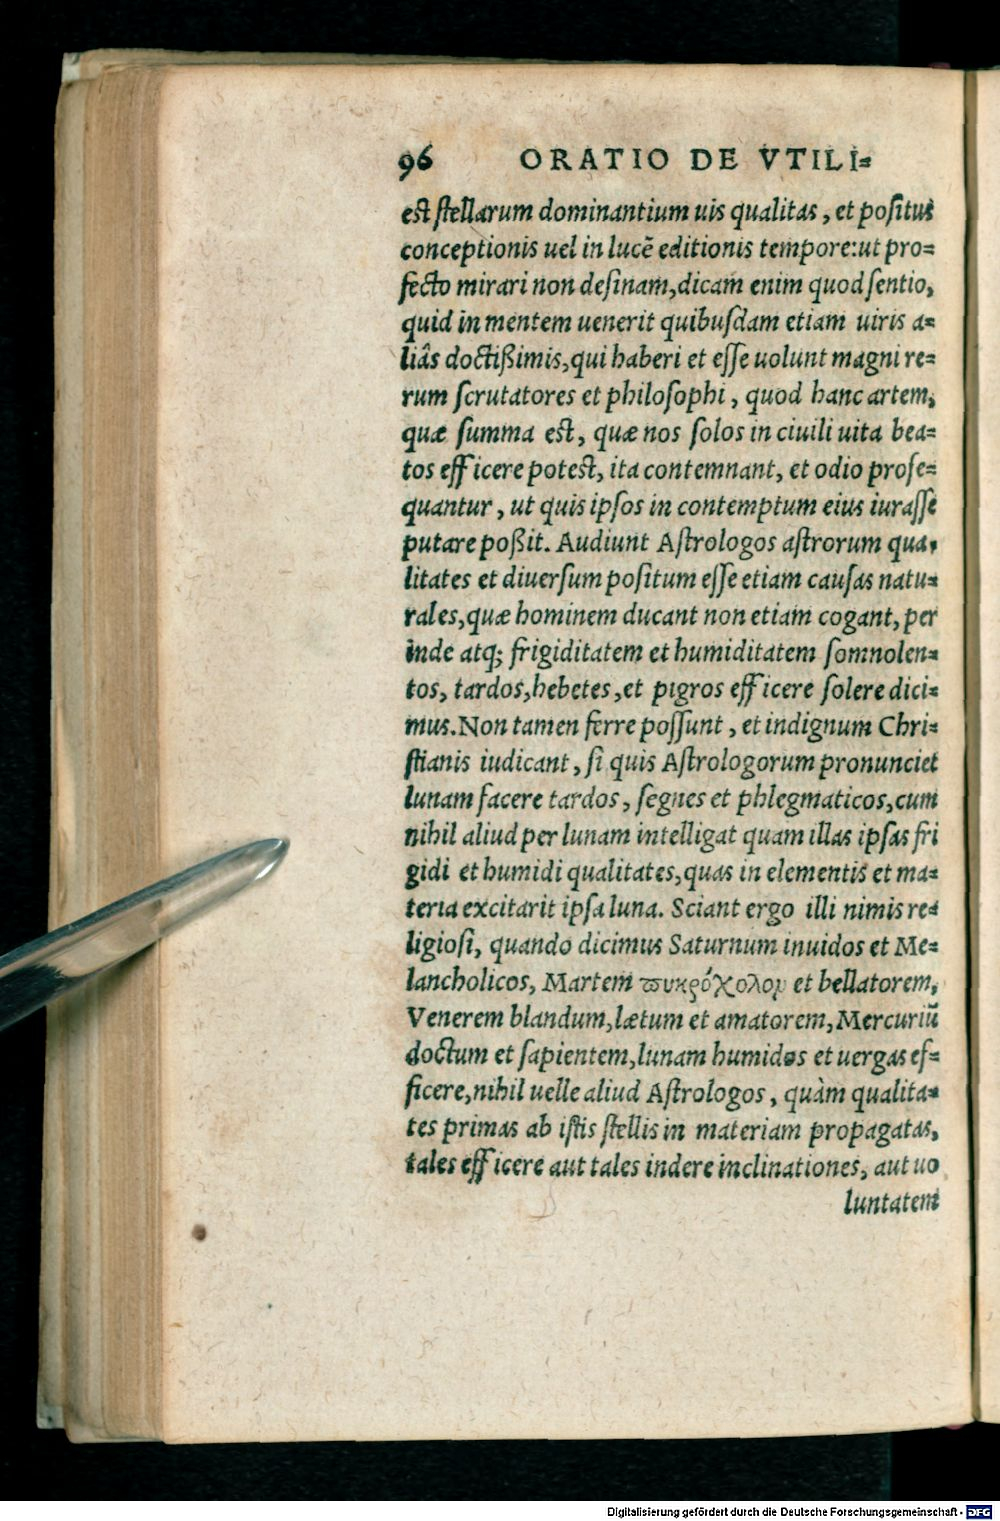 96 ORATIO DE VTILI-
est stellarum dominantium uis qualitas, et positus
conceptionis uel in lucẽ editionis tempore: ut pro-
fecto mirari non desinam, dicam enim quod sentio,
quid in mentem uenerit quibusdam etiam uiris a-
liâs doctißimis, qui haberi et esse uolunt magni re-
rum scrutatores et philosophi, quod hanc artem,
quæ summa est, quæ nos solos in ciuili uita bea-
tos efficere potest, ita contemnant, et odio prose-
quantur, ut quis ipsos in contemptum eius iurasse
putare poßit. Audiunt Astrologos astrorum qua-
litates et diuersum positum esse etiam causas natu-
rales, quæ hominem ducant non etiam cogant, per
inde atq; frigiditatem et humiditatem somnolen-
tos, tardos, hebetes, et pigros efficere solere dici-
mus. Non tamen ferre possunt, et indignum Chri-
stianis iudicant, si quis Astrologorum pronunciet
lunam facere tardos, segnes et phlegmaticos, cum
nihil aliud per lunam intelligat quam illas ipsas fri
gidi et humidi qualitates, quas in elementis et ma-
teria excitarit ipsa luna. Sciant ergo illi nimis re-
ligiosi, quando dicimus Saturnum inuidos et Me-
lancholicos, Martem πυκρόχολομ et bellatorem,
Venerem blandum, lætum et amatorem, Mercuriũ
doctum et sapientem, lunam humidos et uergas ef-
ficere, nihil uelle aliud Astrologos, quàm qualita-
tes primas ab istis stellis in materiam propagatas,
tales efficere aut tales indere inclinationes, aut uo
luntatem
Digitalisierung gefördert durch die Deutsche Forschungsgemeinschaft - DFG